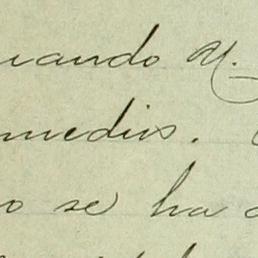 uando U.
medios.
o se ha